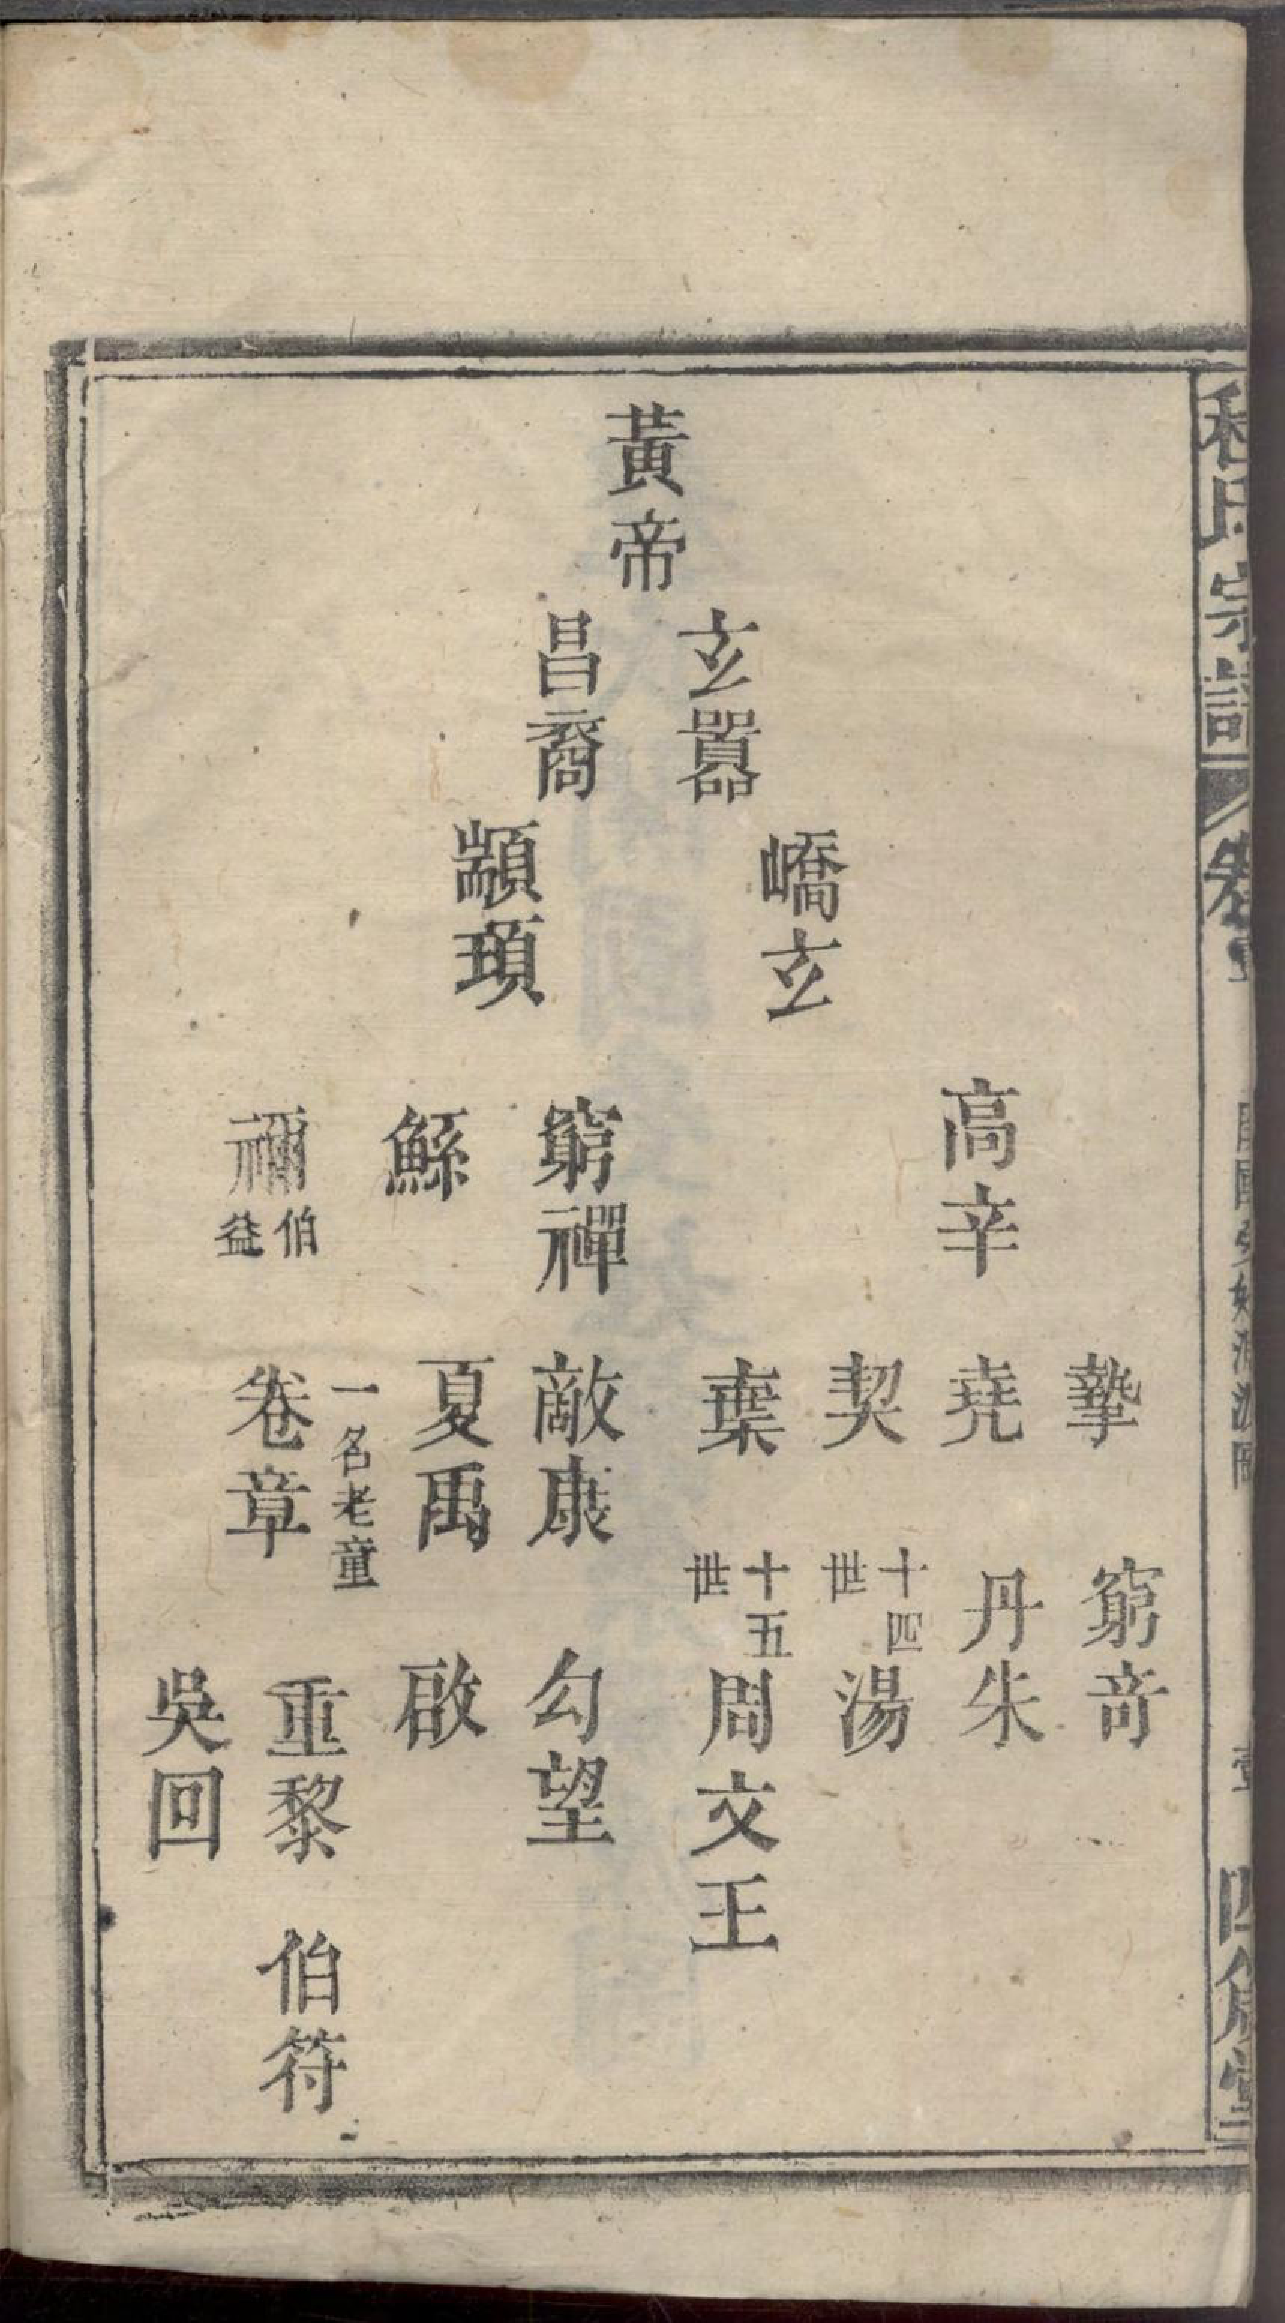 黃帝
玄囂
昌裔
嶠玄
顓頊
高辛
窮禪
鯀
禰 伯益
摯
堯
契
棄
敵康
夏禹
一名老童
卷章
窮竒
丹朱
十四世
湯
十五世
周文王
勾望
啟
重黎
吳回
伯符
氏宗譜
卷壹